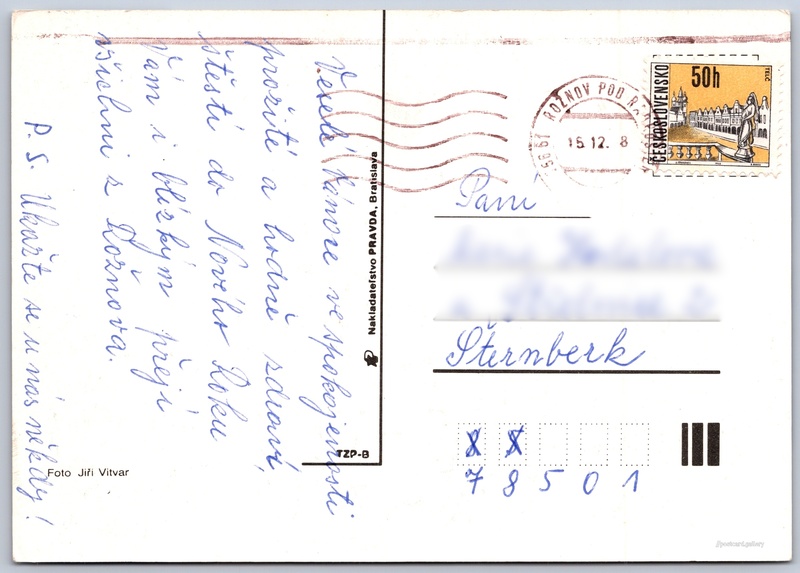 Veselé Vánoce ve spokojenosti
prožité a hodně zdraví,
štěstí do Nového Roku
Vám i blízkým přejí
všichni z Rožnova.
P.S. Ukažte se u nás někdy!
Foto Jiří Vitvar
Nakladateľstvo PRAVDA, Bratislava
TZP-B
756 61 ROŽNOV POD R
15.12. 8
ČESKOSLOVENSKO
50h
TELČ
Paní
Šternberk
78501